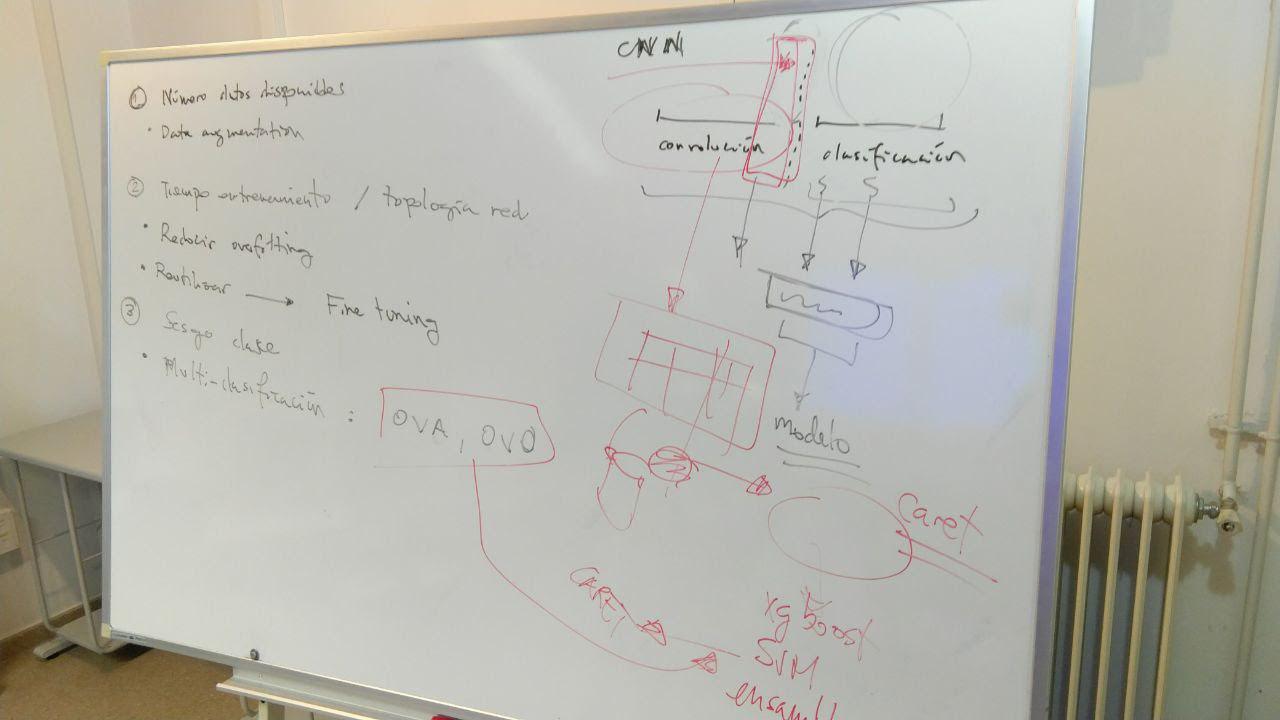 ① Número datos disponibles
• Data augmentation
② Tiempo entrenamiento / topología red
• Reducir overfitting
• Reutilizar → Fine tuning
③ Sesgo clase
• Multi-clasificación : OVA, OVO
CNN
convolución
clasificación
modelo
Caret
CARET
xgboost
SVM
ensambl